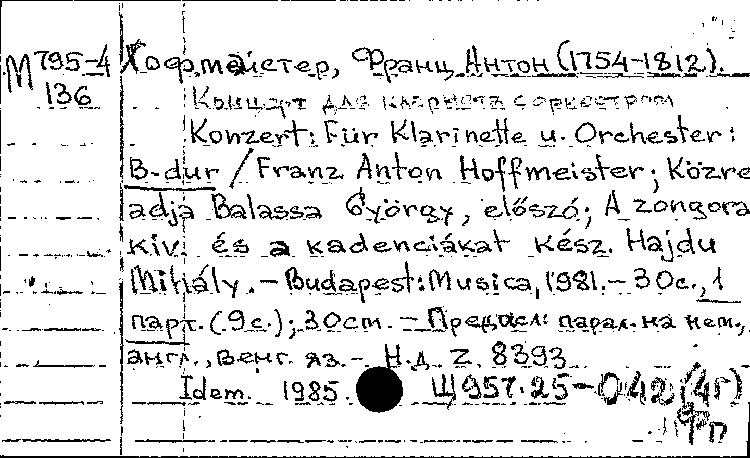 М 795-4
136
Хофмайстер, Франц Антон (1754-1812).
Концерт для кларнета с оркестром
Konzert: Für Klarinette u. Orchester:
B-dur / Franz Anton Hoffmeister; Közre
adja Balassa György, előszó; A zongora
kiv. és a kadenciákat kész. Hajdu
Mihály. - Budapest: Musica, 1981. - 30с., 1
парт. (9с.); 30cm. - Предисл: парал. на нем.,
англ., венг. яз. - Н.д. Z. 8393
Idem. 1985. Щ957.25-042(4Г)